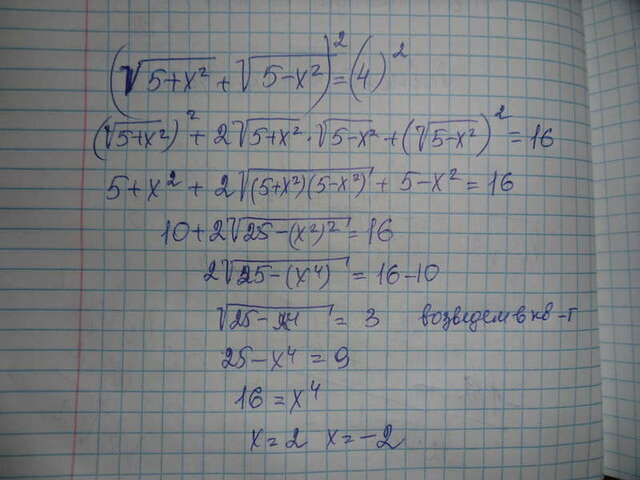 (√5+x² + √5-x²)² = (4)²
(√5+x²)² + 2√5+x² · √5-x² + (√5-x²)² = 16
5+x² + 2√(5+x²)(5-x²) + 5-x² = 16
10+2√25-(x²)² = 16
2√25-(x⁴) = 16-10
√25-x⁴ = 3 возведем в кв-т
25-x⁴ = 9
16 = x⁴
x=2 x=-2